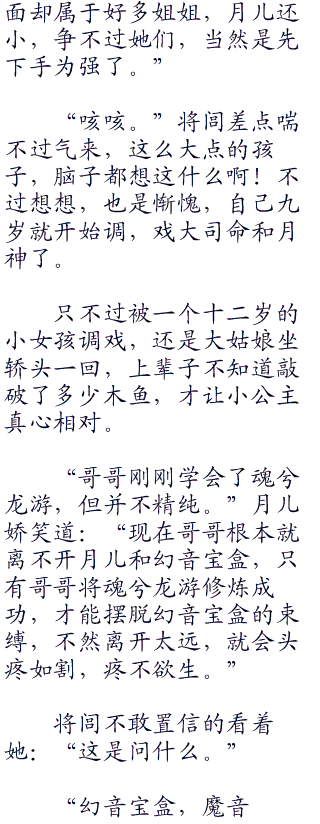 面却属于好多姐姐，月儿还
小，争不过她们，当然是先
下手为强了。”
“咳咳。”将闾差点喘
不过气来，这么大点的孩
子，脑子都想这什么啊！不
过想想，也是惭愧，自己九
岁就开始调，戏大司命和月
神了。
只不过被一个十二岁的
小女孩调戏，还是大姑娘坐
轿头一回，上辈子不知道敲
破了多少木鱼，才让小公主
真心相对。
“哥哥刚刚学会了魂兮
龙游，但并不精纯。”月儿
娇笑道：“现在哥哥根本就
离不开月儿和幻音宝盒，只
有哥哥将魂兮龙游修炼成
功，才能摆脱幻音宝盒的束
缚，不然离开太远，就会头
疼如割，疼不欲生。”
将闾不敢置信的看着
她：“这是问什么。”
“幻音宝盒，魔音